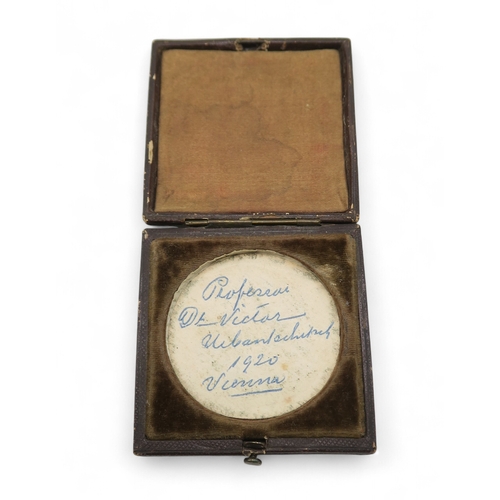 Professor
Dr Victor
Urbantschitsch
1920
Vienna